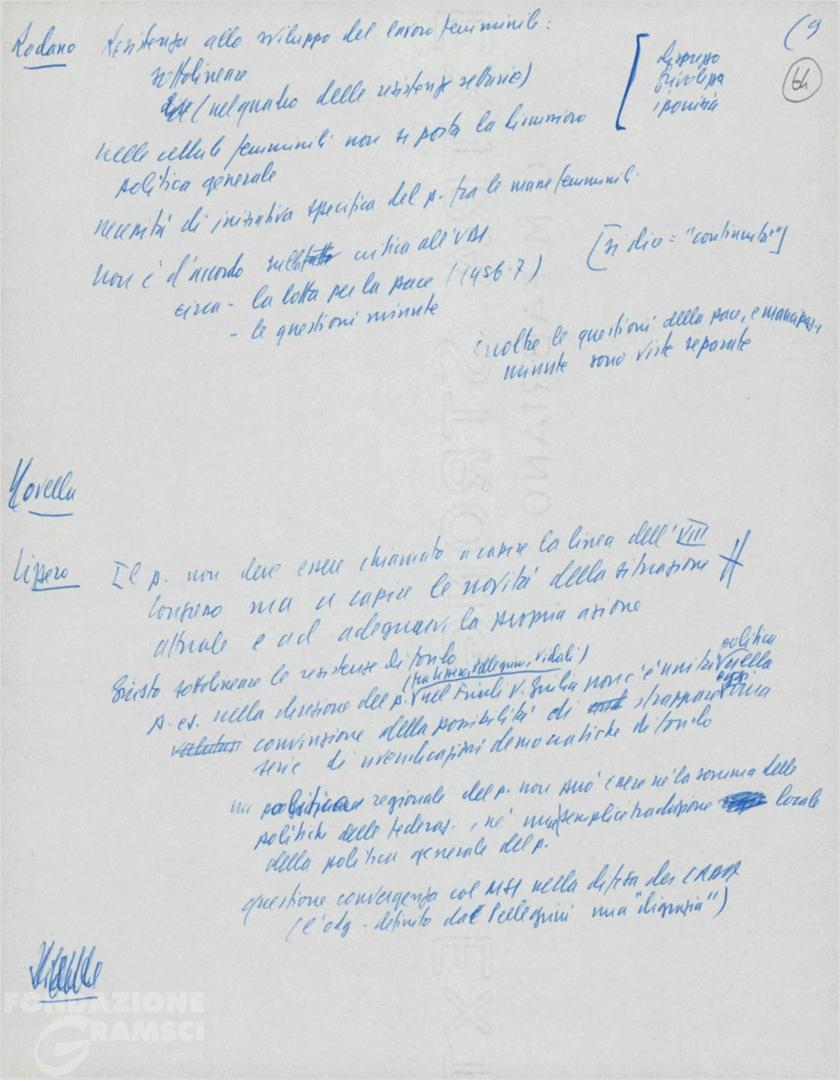 (9
64
Rodano Resistenza allo sviluppo del lavoro femminile:
sottolineare
(nel quadro delle resistenze settarie)
[ disprezzo
frivolezza
ipocrisia
nelle cellule femminili non si porta la discussione
politica generale
necessità di iniziativa specifica del p. tra le masse femminili.
non è d'accordo critica all'UDI
[si dice = "continuità"]
circa - la lotta per la pace (1956-7)
- le questioni minute
inoltre le questioni della pace, emancipaz.,
minute sono viste separate
Novella
Lizzero Il p. non deve essere chiamato a capire la linea dell'VIII
Congresso ma a capire le novità della situazione
attuale e ad adeguarvi la propria azione
Giusto sottolineare le resistenze di fondo
(tra Lizzero, Pellegrini, Vidali)
p. es. nella direzione del p. nel Friuli V. Giulia non c'è unità politica nella
convinzione della possibilità di strappare oggi una
serie di rivendicazioni democratiche di fondo
una politica regionale del p. non può essere né la somma delle
politiche delle Federaz., né una semplice traduzione locale
della politica generale del p.
questione convergenza col MSI nella difesa dei
(l'odg - definito da Pellegrini una "disgrazia")
FONDAZIONE
GRAMSCI
onlus